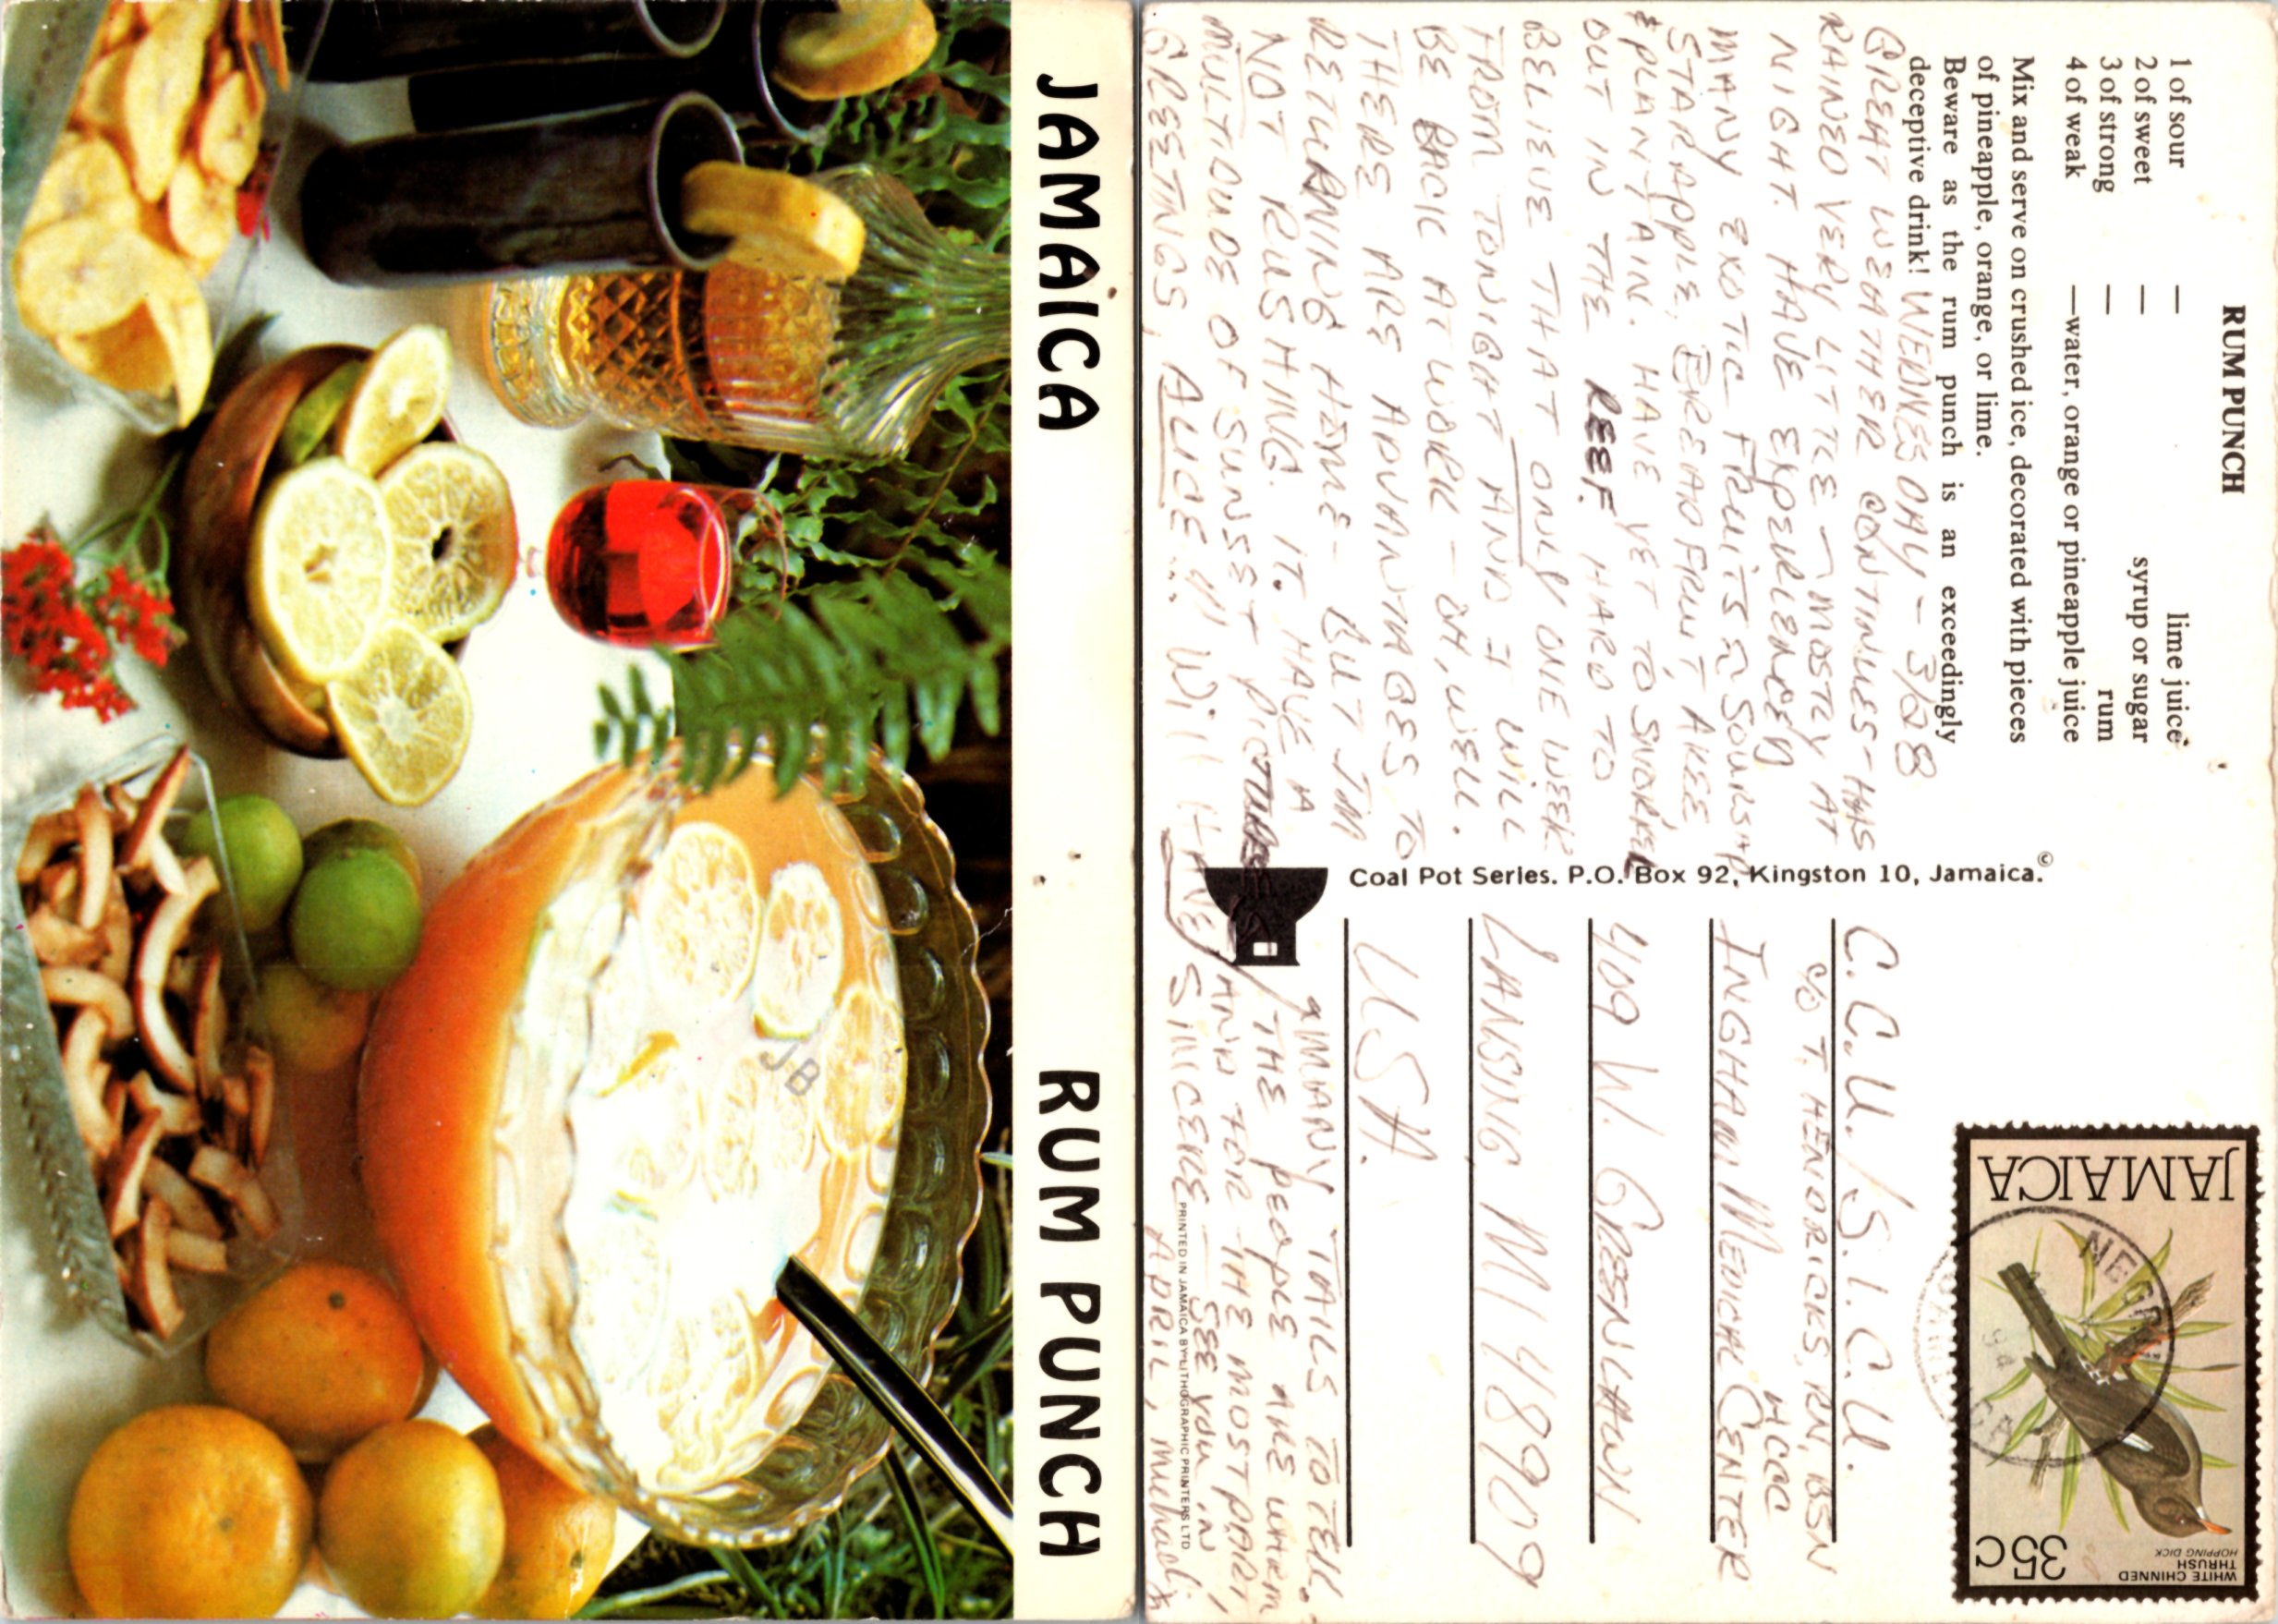 JAMAICA RUM PUNCH
JB
RUM PUNCH
1 of sour — lime juice
2 of sweet — syrup or sugar
3 of strong — rum
4 of weak —water, orange or pineapple juice
Mix and serve on crushed ice, decorated with pieces
of pineapple, orange, or lime.
Beware as the rum punch is an exceedingly
deceptive drink!
WEDNESDAY - 3/28
GREAT WEATHER CONTINUES - HAS
RAINED VERY LITTLE - MOSTLY AT
NIGHT. HAVE EXPERIENCED
MANY EXOTIC FRUITS
STARAPPLE, BREADFRUIT, AKEE
& PLANTAIN. HAVE YET TO SNORKEL
OUT IN THE REEF. HARD TO
BELIEVE THAT ONLY ONE WEEK
FROM TONIGHT AND I WILL
BE BACK AT WORK - OH, WELL.
THERE ARE ADVANTAGES TO
RETURNING HOME - BUT I'M
NOT RUSHING IT. HAVE A
MULTITUDE OF SUNSET PICTURES
GREETINGS, ALICE... !!! WILL HAVE
MANY TAILS TO TELL.
THE PEOPLE ARE WARM
AND FOR THE MOST PART,
SINCERE - SEE YOU IN
APRIL, Michael
Coal Pot Series. P.O. Box 92, Kingston 10, Jamaica.©
C.C.U./S.I.C.U.
c/o T. HENDRICKS, RN, BSN
HCCC
INGHAM MEDICAL CENTER
409 W. GREENLAWN
LANSING, MI 48909
USA.
PRINTED IN JAMAICA BY LITHOGRAPHIC PRINTERS LTD
JAMAICA
NEG
WHITE CHINNED
THRUSH
HOPPING DICK
35c